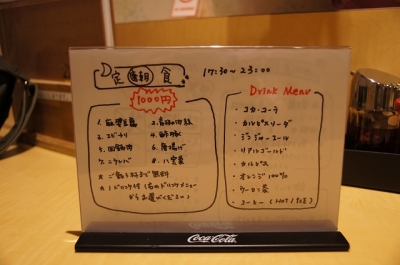 定食
17:30～23:00
1000円
1. 麻婆豆腐
2. エビチリ
3. 回鍋肉
4. 酢豚
6. 唐揚げ
7. ニラレバ
8. 八宝菜
※ご飯もお好きな無料
※1ドリンク付（右のドリンクメニュー
からお選びください）
Drink Menu
・コカ・コーラ
・カルピスソーダ
・ジンジャーエール
・リアルゴールド
・カルピス
・オレンジ100%
・ウーロン茶
・コーヒー（HOT / ICE）
Coca-Cola